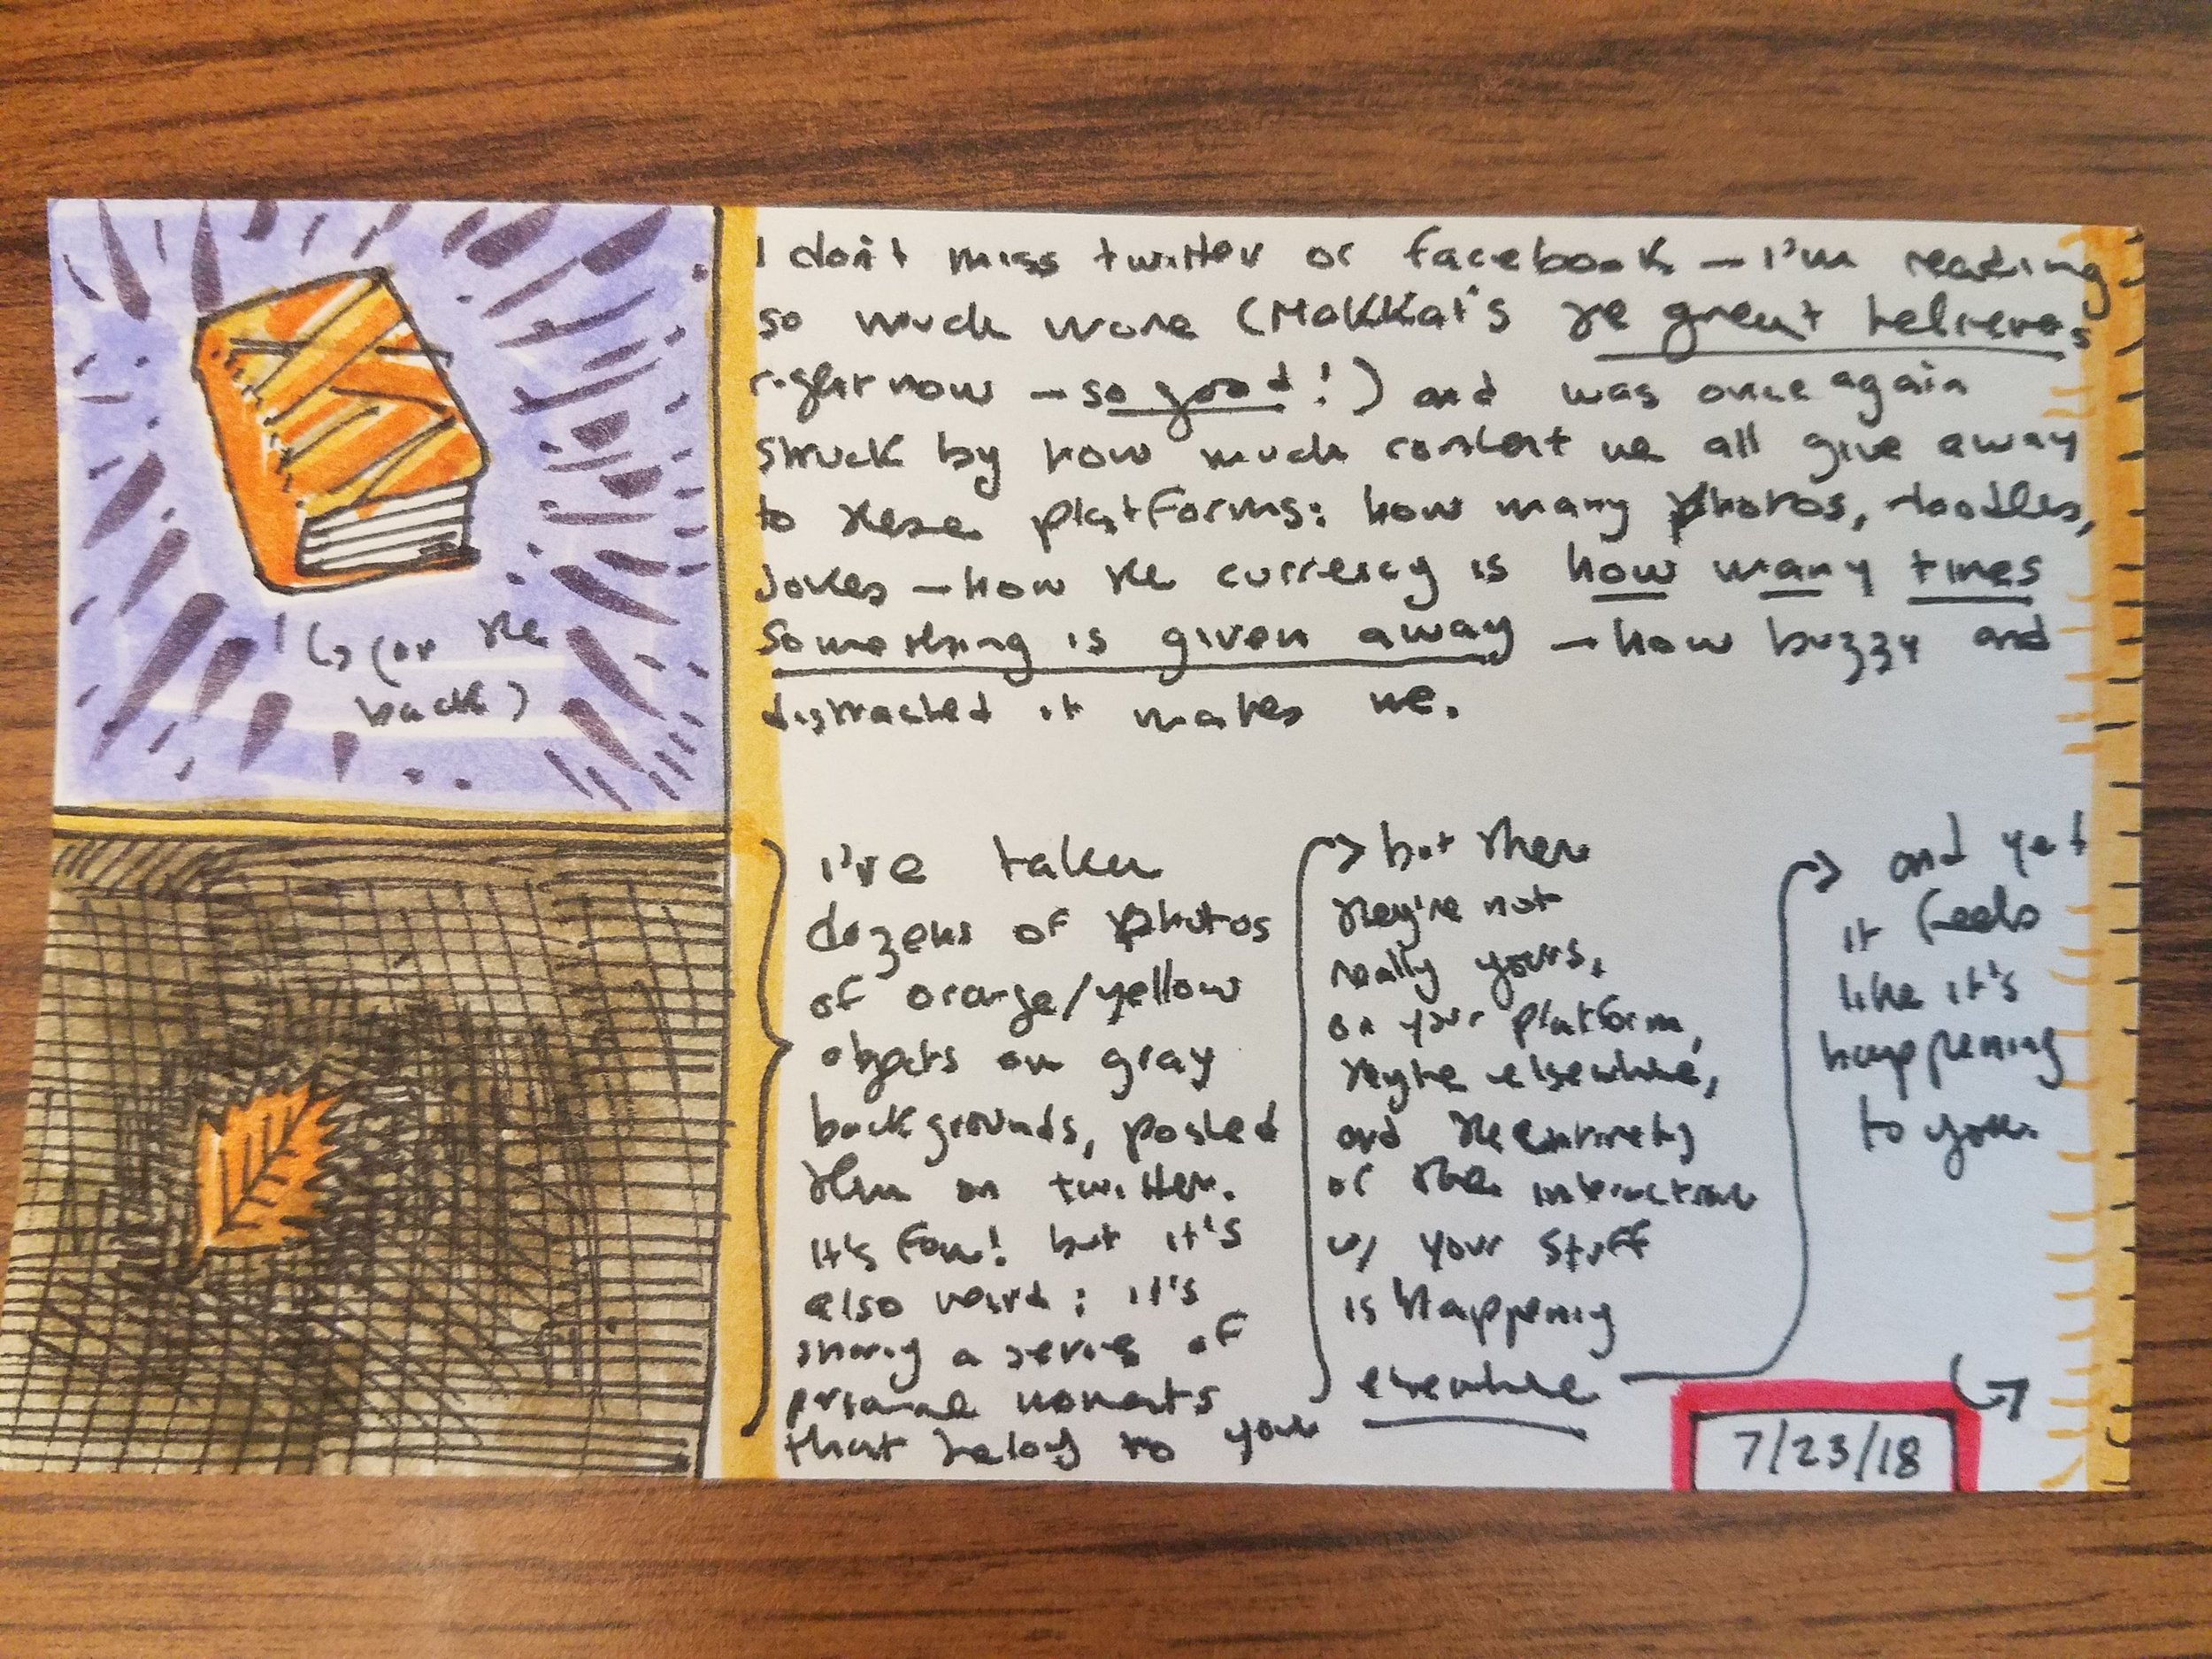 I don't miss twitter or facebook — I'm reading
so much more (Makkai's the great believers
right now — so good!) and was once again
struck by how much content we all give away
to these platforms: how many photos, doodles,
jokes — how the currency is how many times
something is given away — how buzzy and
distracted it makes me.
↳ (on the
back)
I've taken
dozens of photos
of orange/yellow
objects on gray
backgrounds, posted
them on twitter.
It's fun! but it's
also weird: it's
sharing a series of
personal moments
that belong to you
but then
they're not
really yours,
on your platform,
they're elsewhere,
and the entirety
of the interaction
w/ your stuff
is happening
elsewhere
and yet
it feels
like it's
happening
to you.
7/23/18